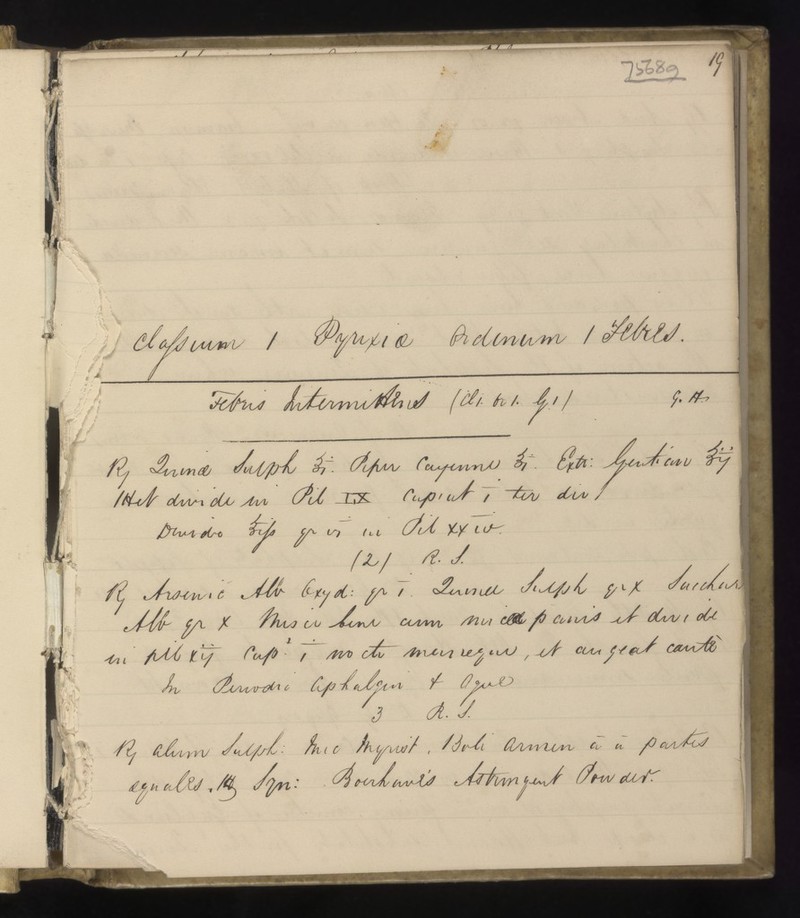 75689 19
Classium 1 Pyrixiæ Ordinum 1 Febres.
Febris Intermittens (Cl 1. Or 1. G. 1) G. H.
℞ Quinæ Sulph ʒi. Piper Cayenne ʒi. Extr: Gentian ʒij
et divide in Pil capiat i ter die
Divide gr vi in Pil xxiv.
(2) R. S.
℞ Arsenic Alb Oxyd: gr i. Quinæ Sulph gr x Sacchar
Alb gr x Misce bene cum mica panis et divide
in pil xij Capt i nocte maneque, et augeat cautè
In Periodic Cephalgia & Ague
3 R. S.
℞ Alum Sulph: Nuc Myrist, Boli Armen ā ā partes
æquales. Syn: Boerhave's Astringent Powder.